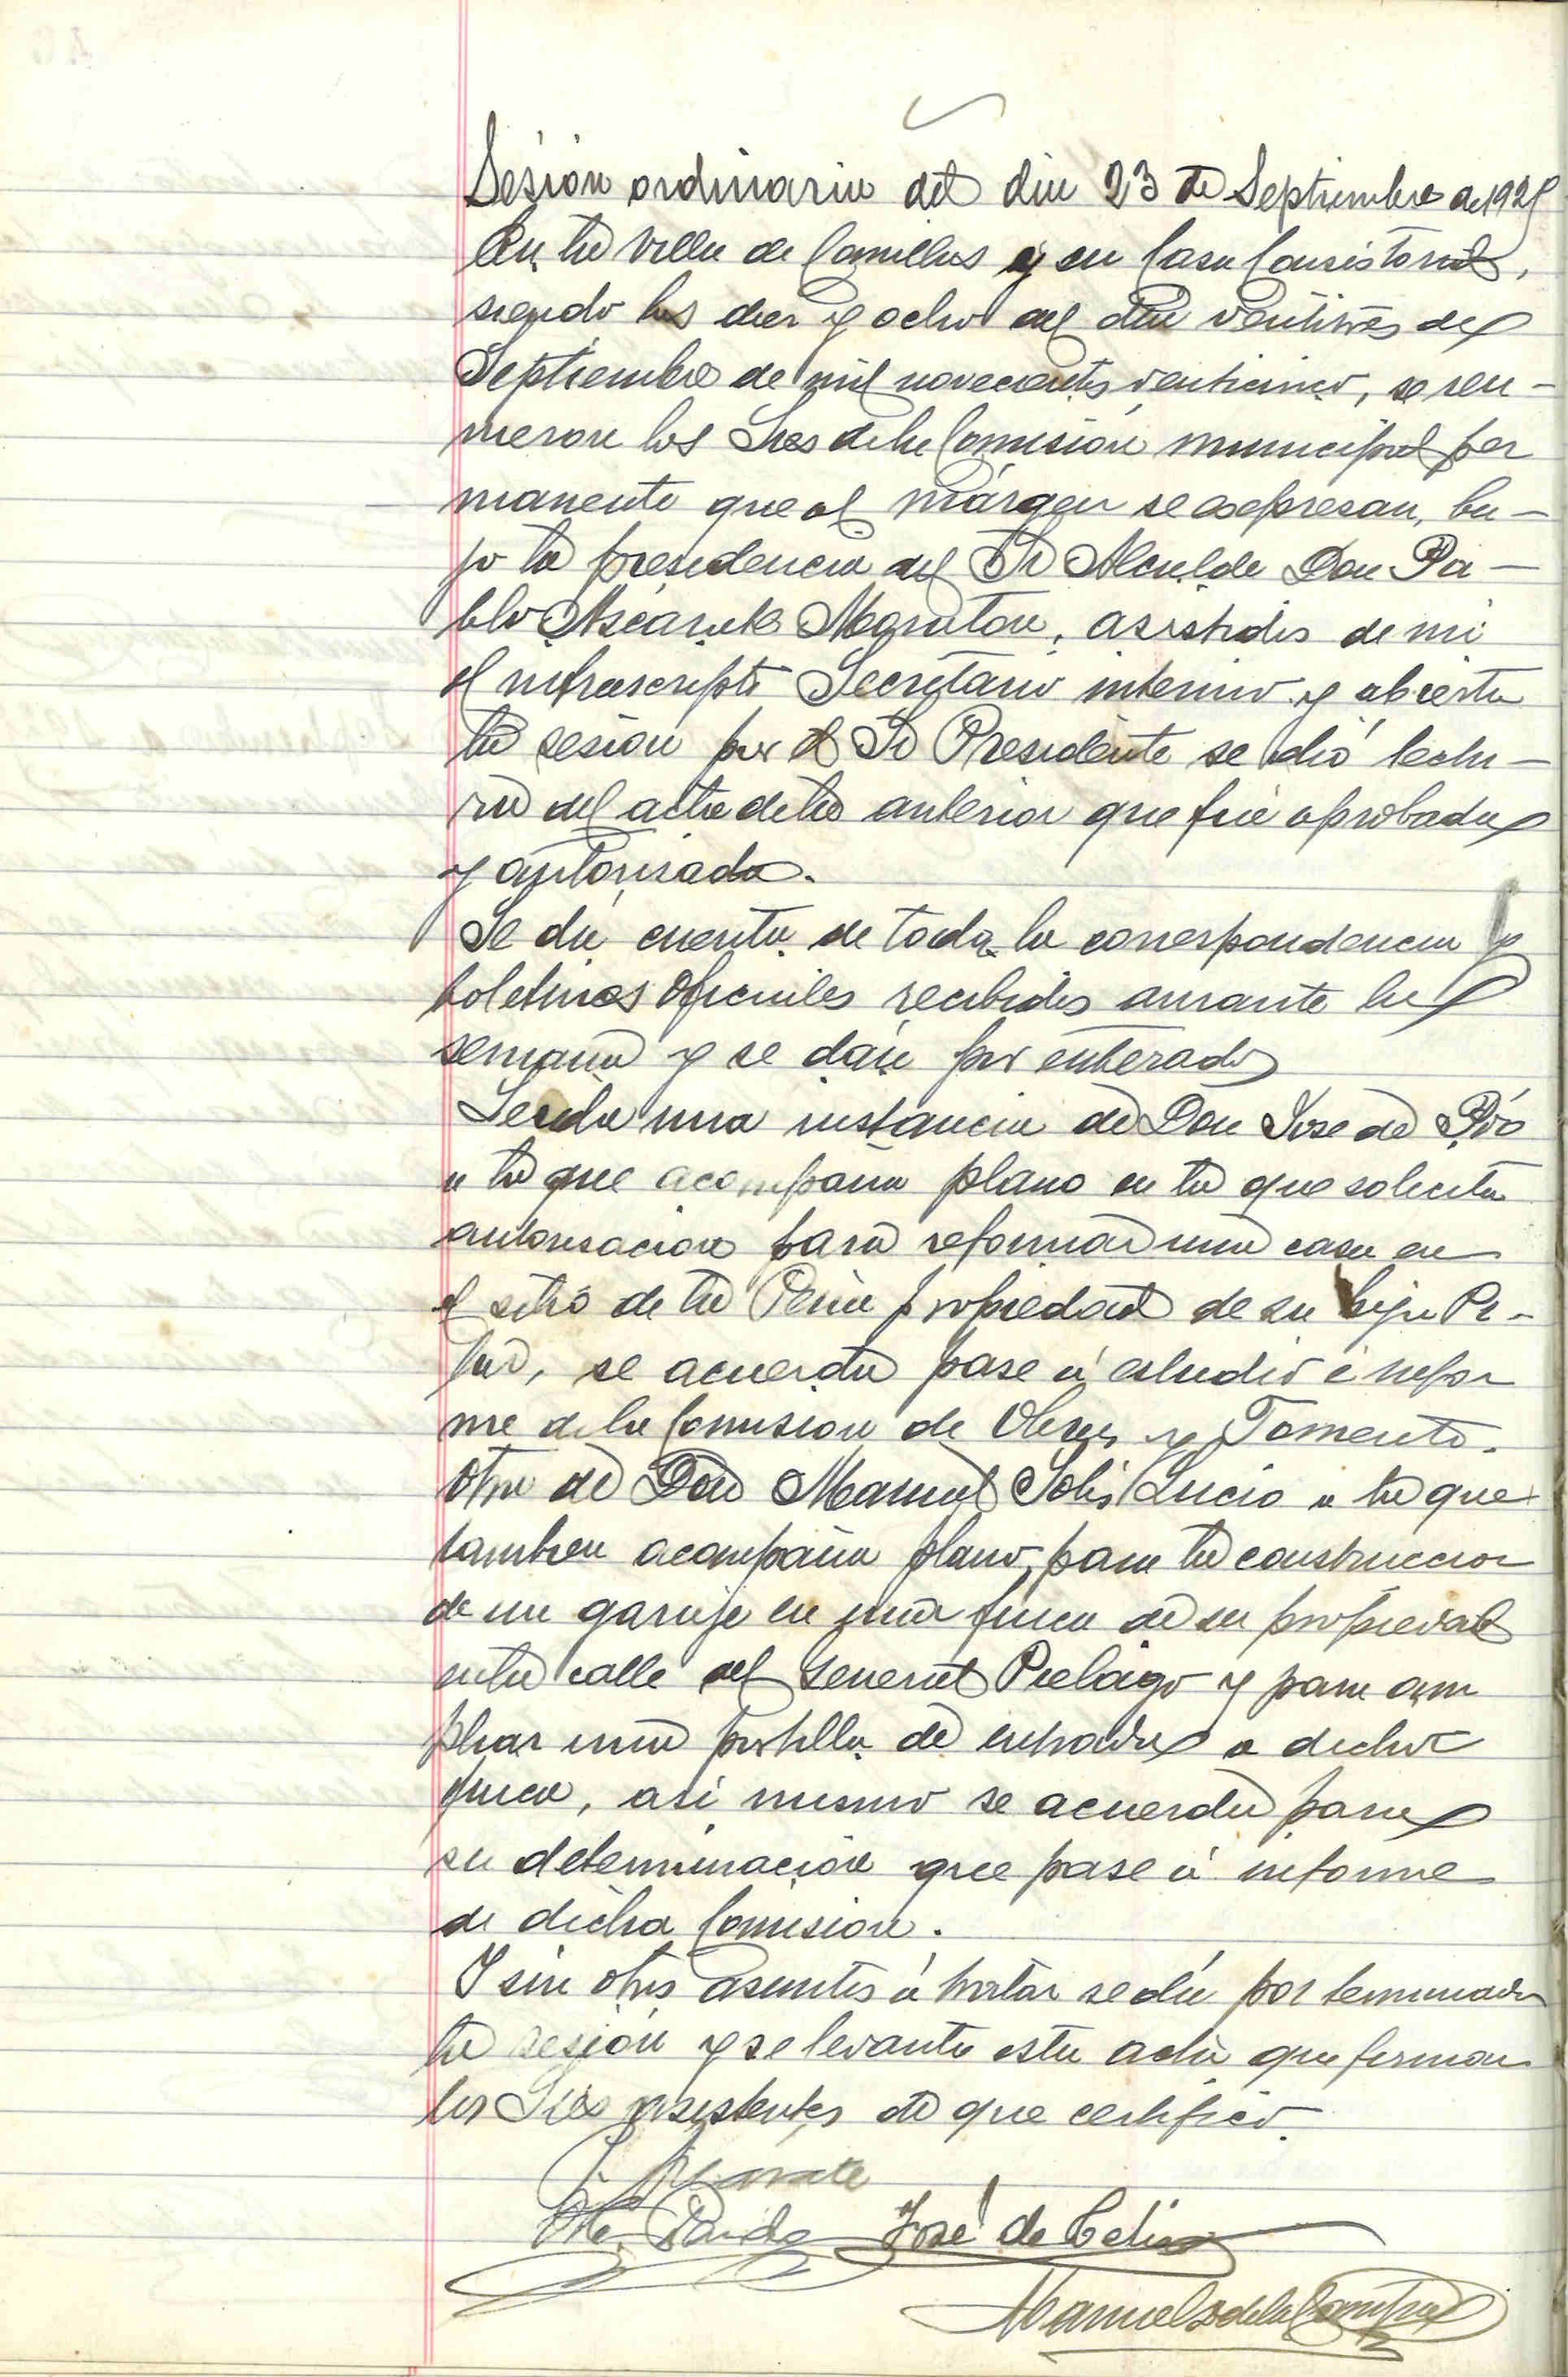 Sesión ordinaria del dia 23 de Septiembre de 1925
En la villa de Comillas y su Casa Consistorial,
siendo las diez y ocho del dia ventitres de
Septiembre de mil novecientos venticinco, se reu-
nieron los Sres de la Comisión municipal per
manente que al márgen se expresan, ba-
jo la presidencia del Sr Alcalde Don Pa-
blo Azcarate, asistidos de mi
el infrascripto Secretario interino y abierta
la sesión por el Sr Presidente se dió lectu-
ra del acta de la anterior que fué aprobada
y autorisada.
Se dá cuenta de toda la correspondencia y
boletines oficiales recibidos durante la
semana y se dán por enterados
Leida una instancia de Don Jose de Rió
a la que acompaña plano en la que solicita
autorisacion para reformar una casa en
el sitio de la Peña propiedad de su hija Pi-
lar, se acuerda pase á estudio é infor
me de la Comision de Obras y Fomento.
Otra de Don Manuel Solis Lucio a la que
tambien acompaña plano, para la construccion
de un garaje en una finca de su propiedad
en la calle del General Pielago y para am
pliar una portilla de entrada a dicha
finca, asi mismo se acuerda para
su determinación que pase á informe
de dicha Comision.
Y sin otros asuntos á tratar se dá por terminada
la sesión y se levanta esta acta que firman
los Sres asistentes de que certifico.
Azcarate
Pardo José de Celis
Manuel S de la Campa